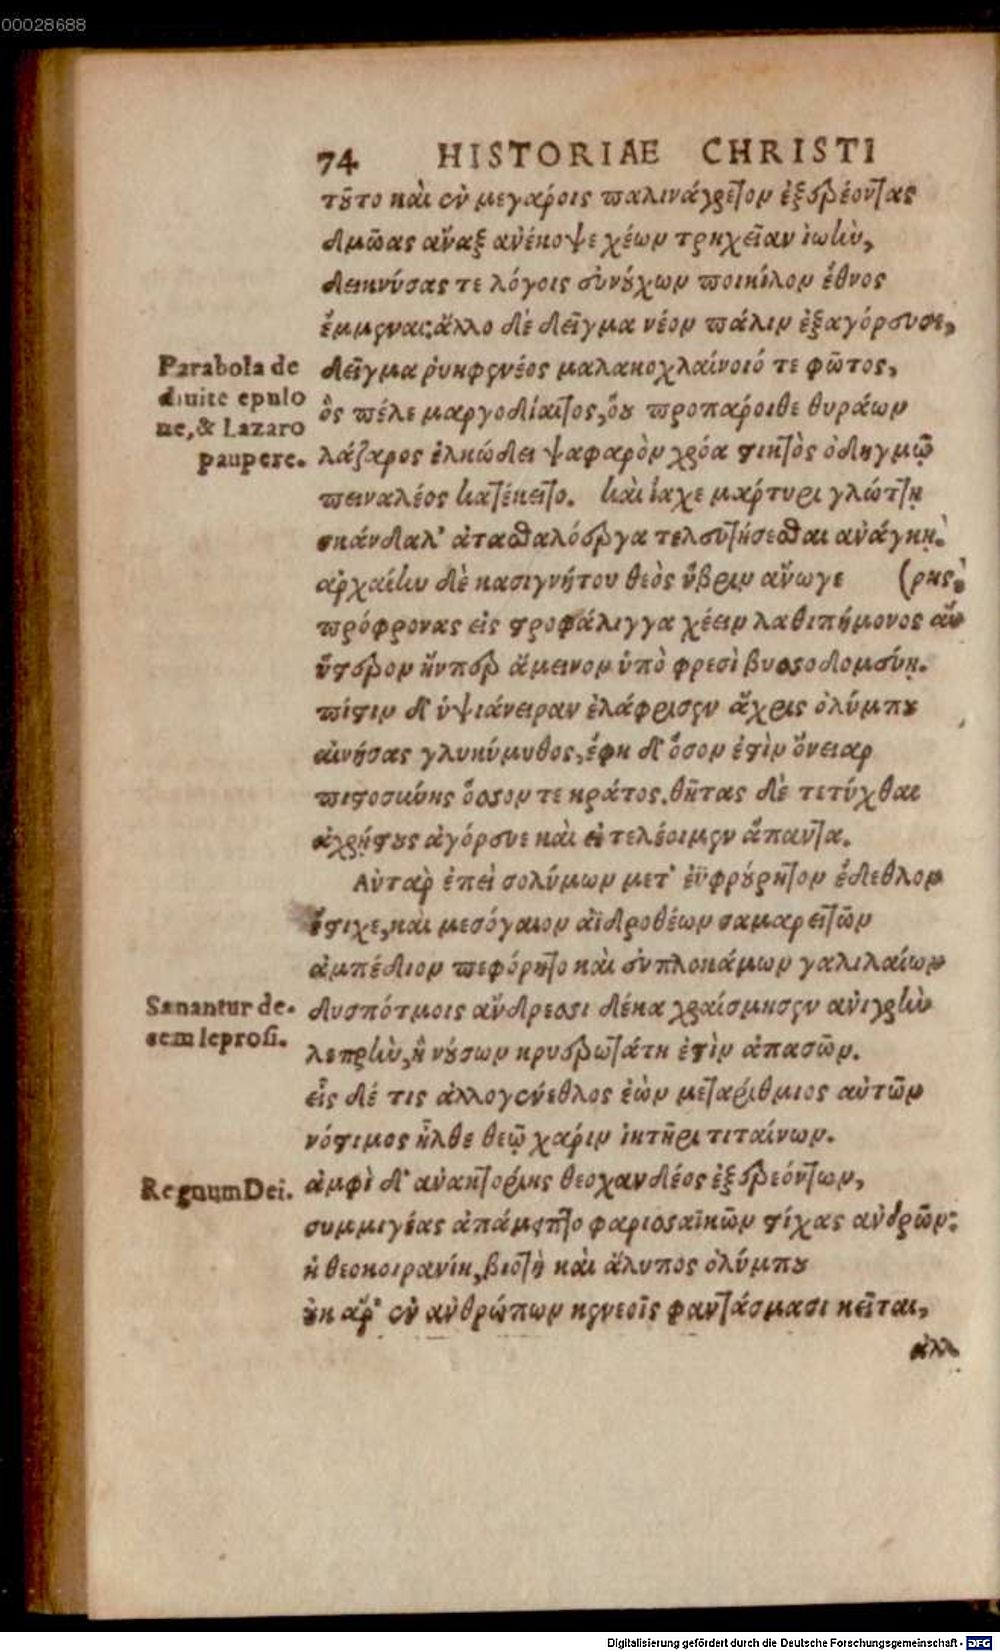 00028688
74 HISTORIAE CHRISTI
τοῦτο καὶ ἐν μεγάροις παλινάγρετον ἐξερέοντας
δμῶας ἄναξ ἀνέκοψε χέων τρηχεῖαν ἰωὴν,
δεικνύσας τε λόγοις συνόχων ποικίλον ἔθνος
ἔμμεναι. ἄλλο δὲ δεῖγμα νέον πάλιν ἐξαγόρευσε,
Parabola de
diuite epulo
ne, & Lazaro
paupere.
δεῖγμα ῥυηφενέος μαλακοχλαίνοιό τε φῶτος,
ὃς πέλε μαργοδίαιτος, οὗ προπάροιθε θυράων
λάζαρος ἑλκώδει ψαφαρὸν χρόα στικτὸς ὀδηγμῷ
πειναλέος κατέκειτο. καὶ ἴαχε μάρτυρι γλώττῃ
σκάνδαλ' ἀτασθαλόεργα τελευτήσεσθαι ἀνάγκῃ.
ἀρχαίην δὲ κασιγνήτου θεὸς ὕβριν ἄνωγε (ρης.
πρόφρονας εἰς στροφάλιγγα χέειν λαθιπήμονος αὔ
ὕστερον ἤνπερ ἄμεινον ὑπὸ φρεσὶ βυσσοδομεύῃ.
πίστιν δ' ὑψιάνειραν ἐλάφρισεν ἄχρις ὀλύμπου
αἰνήσας γλυκύμυθος, ἔφη δ' ὅσον ἐστὶν ὄνειαρ
πιστοσύνης ὅσσον τε κράτος. θῆτας δὲ τετύχθαι
ἀχρήστους ἀγόρευε καὶ εἰ τελέοιμεν ἅπαντα.
Αὐτὰρ ἐπεὶ σολύμων μετ' ἐϋφρούρητον ἔδεθλον
ἔστιχε, καὶ μεσόγαιον ἀϊδροθέων σαμαρειτῶν
ἀμπέδιον πεφόρητο καὶ εὐπλοκάμων γαλιλαίων
Sanantur de-
cem leprosi.
δυσπότμοις ἄνδρεσσι δέκα χραίσμησεν ἀνιγρὴν
λεπρὴν, ἣ νούσων κρυερωτάτη ἐστὶν ἁπασῶν.
εἷς δέ τις ἀλλογένεθλος ἐὼν μεταρίθμιος αὐτῶν
νόστιμος ἦλθε θεῷ χάριν ἰητῆρι τιταίνων.
Regnum Dei.
ἀμφὶ δ' ἀνακτορίης θεοχανδέος ἐξερεόντων,
συμμιγέας ἀπάμειπτο φαρισσαϊκῶν στίχας ἀνδρῶν:
ἡ θεοκοιρανίη, βιοτὴ καὶ ἄλυπος ὀλύμπου
οὐκ ἄρ' ἐν ἀνθρώπων κενεοῖς φαντάσμασι κεῖται,
ἀλλ
Digitalisierung gefördert durch die Deutsche Forschungsgemeinschaft - DFG